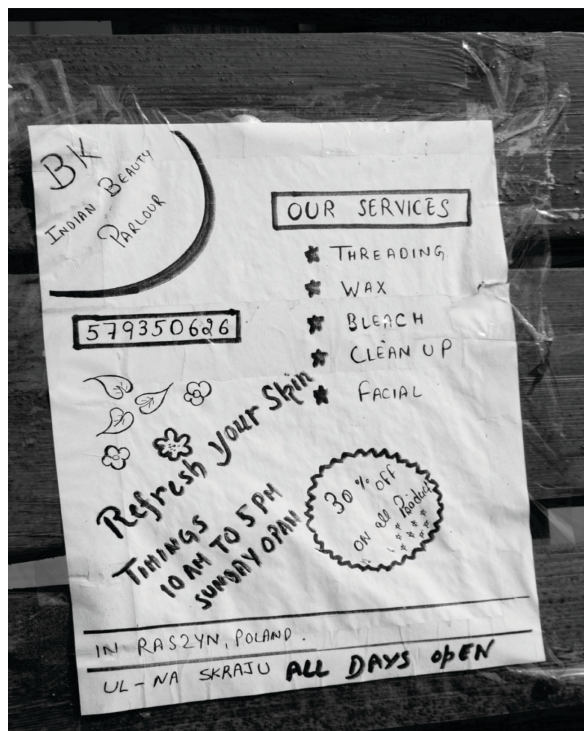 BK
INDIAN BEAUTY
PARLOUR
579350626
OUR SERVICES
THREADING
WAX
BLEACH
CLEAN UP
FACIAL
Refresh Your Skin
TIMINGS
10 AM TO 5 PM
SUNDAY OPAN
30% OFF
ON all
IN RASZYN, POLAND.
UL-NA SKRAJU ALL DAYS OPEN